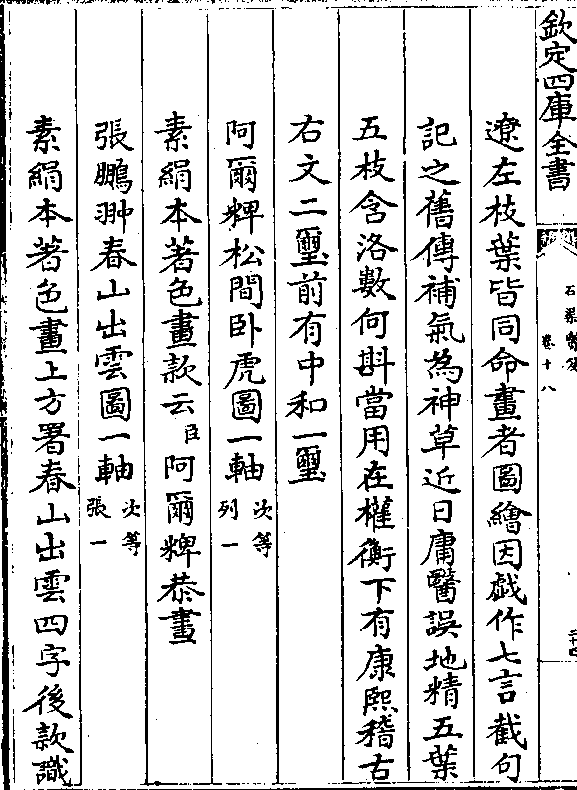 欽定四庫全書
石渠寶笈
卷十八
二十四
遼左枝葉皆同命畫者圖繪因戯作七言截句
記之舊傳補氣為神草近日庸醫誤地精五葉
五枝含洛數何斟當用在權衡下有康熙稽古
右文二璽前有中和一璽
阿爾稗松間卧虎圖一軸 次等
列一
素絹本著色畫款云臣阿爾稗恭畫
張鵬翀春山出雲圖一軸 次等
張一
素絹本著色畫上方署春山出雲四字後款識